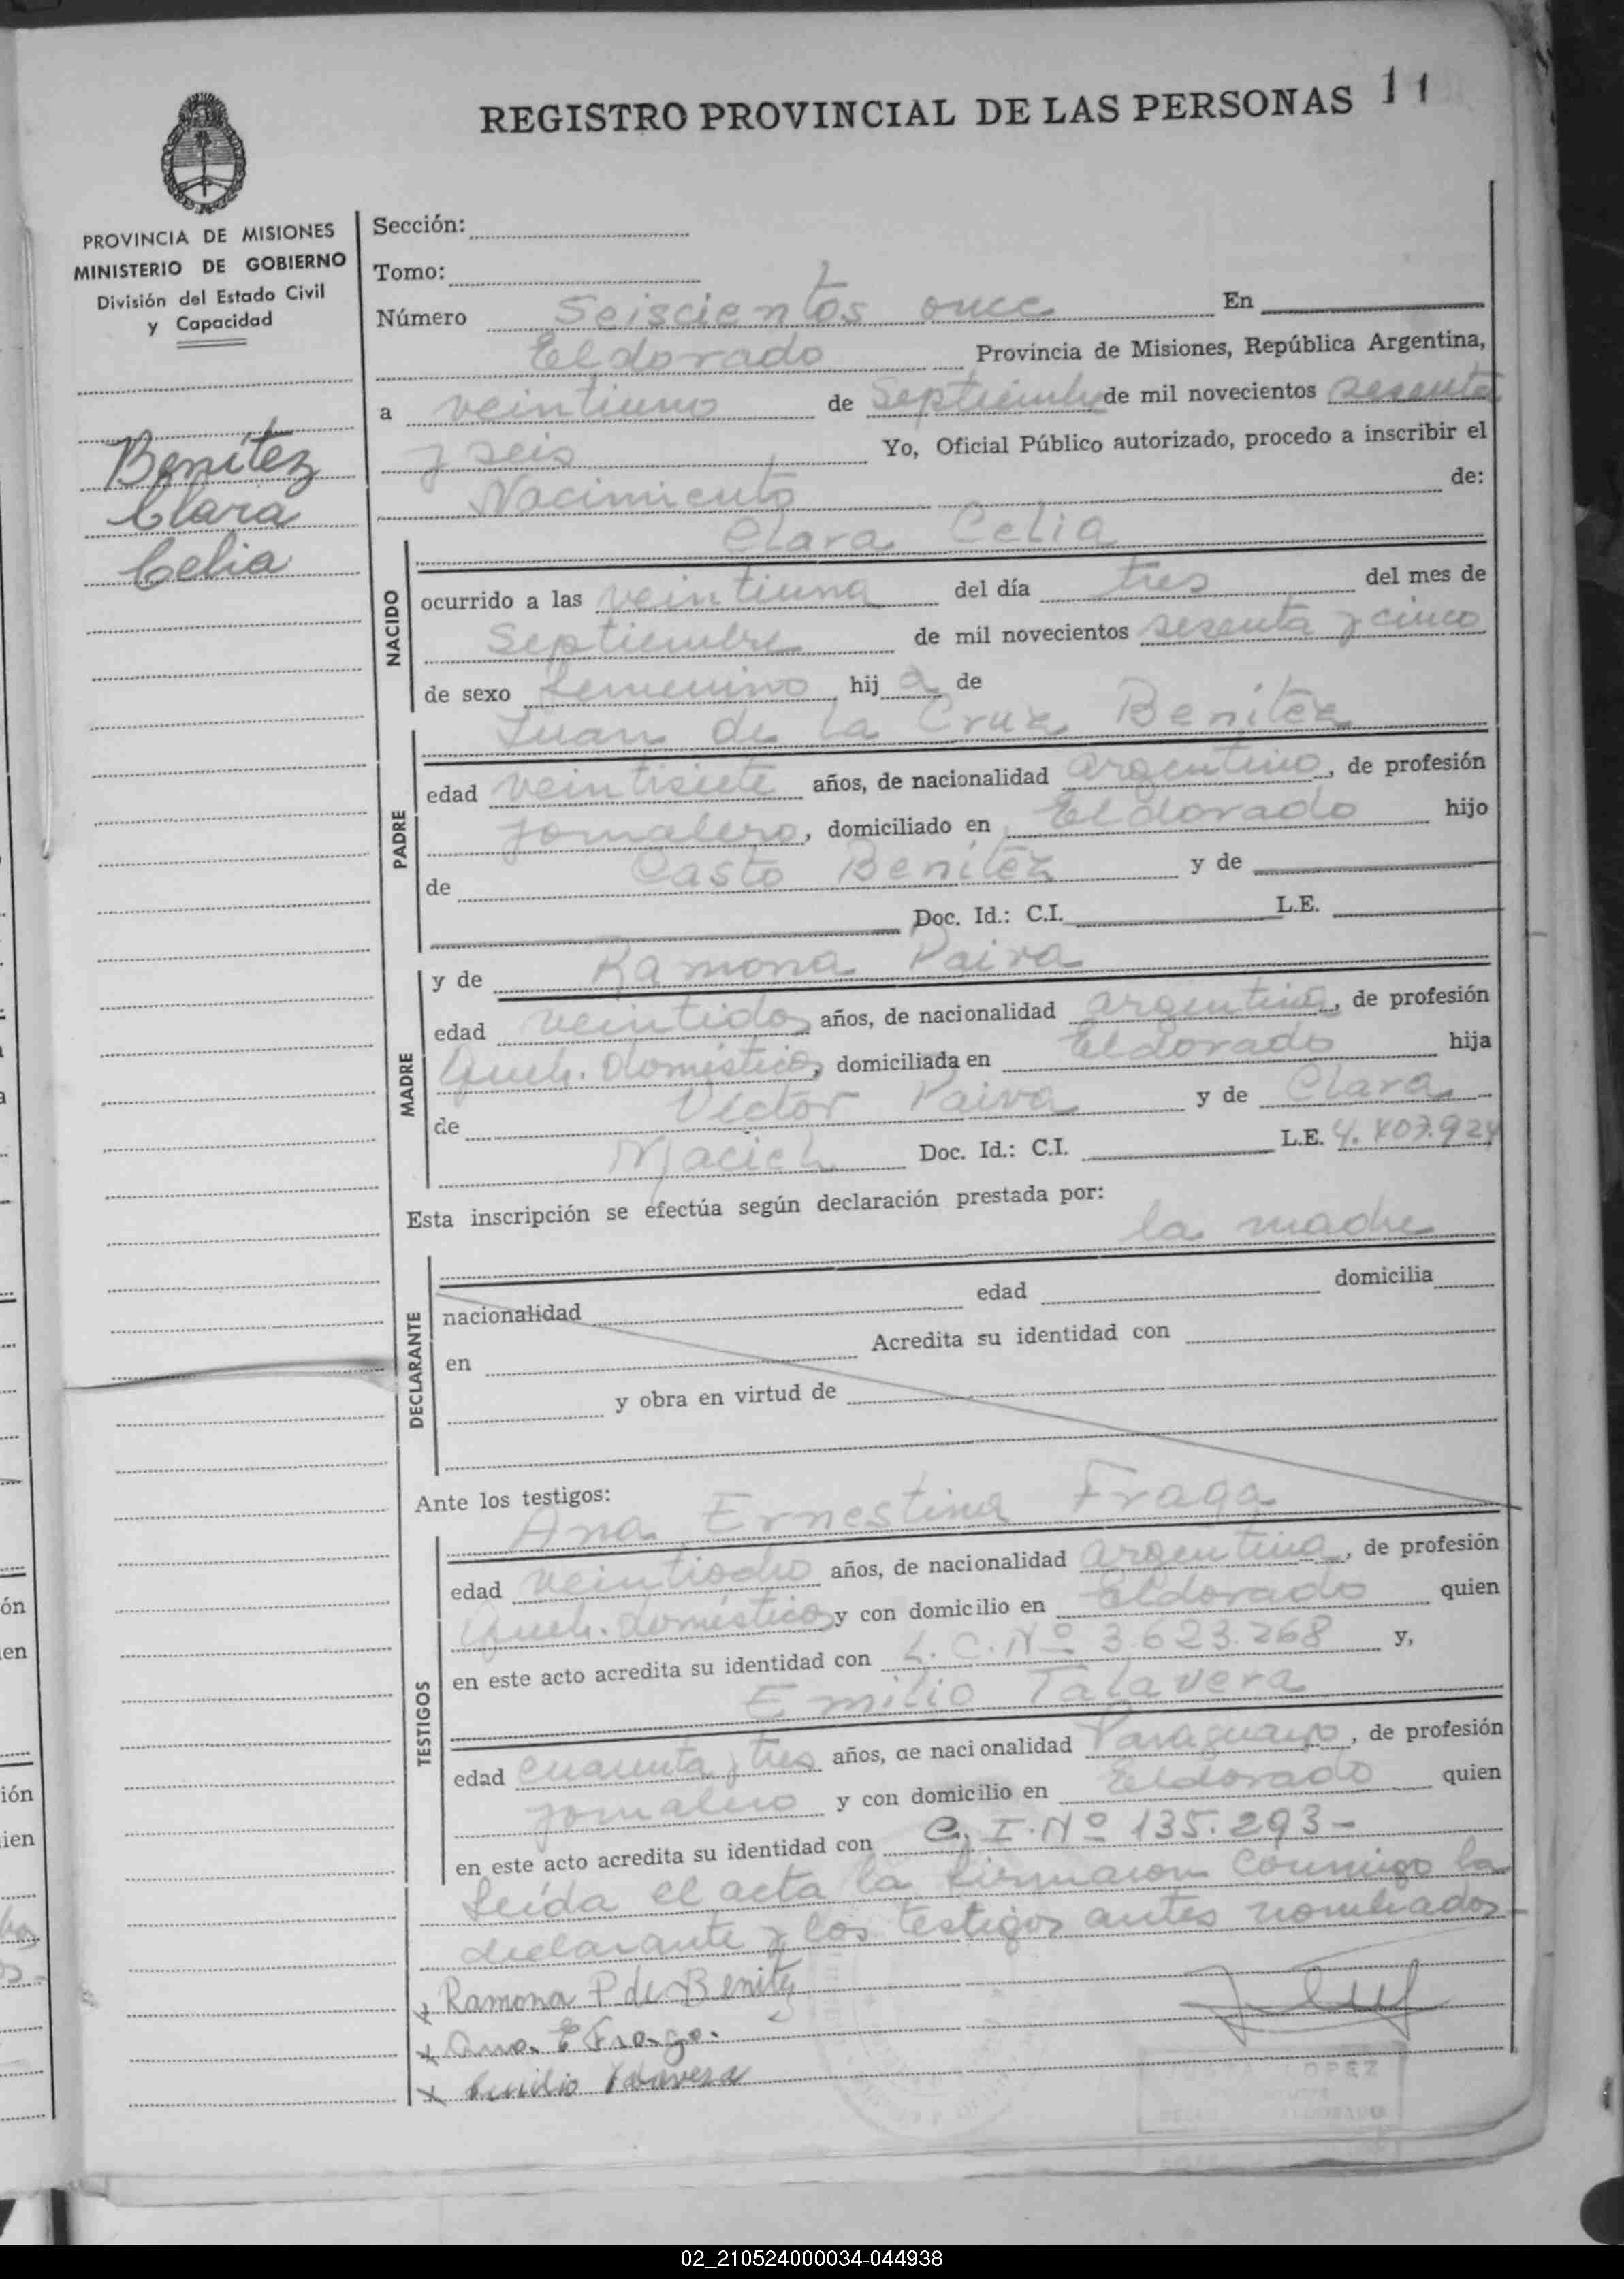 REGISTRO PROVINCIAL DE LAS PERSONAS 11
PROVINCIA DE MISIONES
MINISTERIO DE GOBIERNO
División del Estado Civil
y Capacidad
Benítez
Clara
Celia
Sección:
Tomo:
Número Seiscientos once En
Eldorado Provincia de Misiones, República Argentina,
a veintiuno de Septiembre de mil novecientos sesenta
y seis Yo, Oficial Público autorizado, procedo a inscribir el
Nacimiento de:
Clara Celia
NACIDO
ocurrido a las veintiuna del día tres del mes de
Septiembre de mil novecientos sesenta y cinco
de sexo femenino hija de
Juan de la Cruz Benítez
PADRE
edad veintisiete años, de nacionalidad argentino, de profesión
jornalero, domiciliado en Eldorado hijo
de Casto Benítez y de
Doc. Id.: C.I. L.E.
MADRE
y de Ramona Paiva
edad veintidos años, de nacionalidad argentina, de profesión
Queh. domésticos, domiciliada en Eldorado hija
de Victor Paiva y de Clara
Doc. Id.: C.I. L.E.
Esta inscripción se efectúa según declaración prestada por:
la madre
DECLARANTE
nacionalidad edad domicilia
en Acredita su identidad con
y obra en virtud de
Ante los testigos:
Ana Ernestina Fraga
TESTIGOS
edad veintiocho años, de nacionalidad argentina, de profesión
Queh. domésticos y con domicilio en Eldorado quien
en este acto acredita su identidad con L.C. Nº 3.623.268 y,
Emilio Talavera
edad cuarenta y tres años, de nacionalidad Paraguayo, de profesión
jornalero y con domicilio en Eldorado quien
en este acto acredita su identidad con C.I. Nº 135.293-
Leída el acta la firmaron conmigo la
declarante y los testigos antes nombrados-
x Ramona P de Benítez
x Ana E Fraga.
x Emilio Talavera
02_210524000034-044938